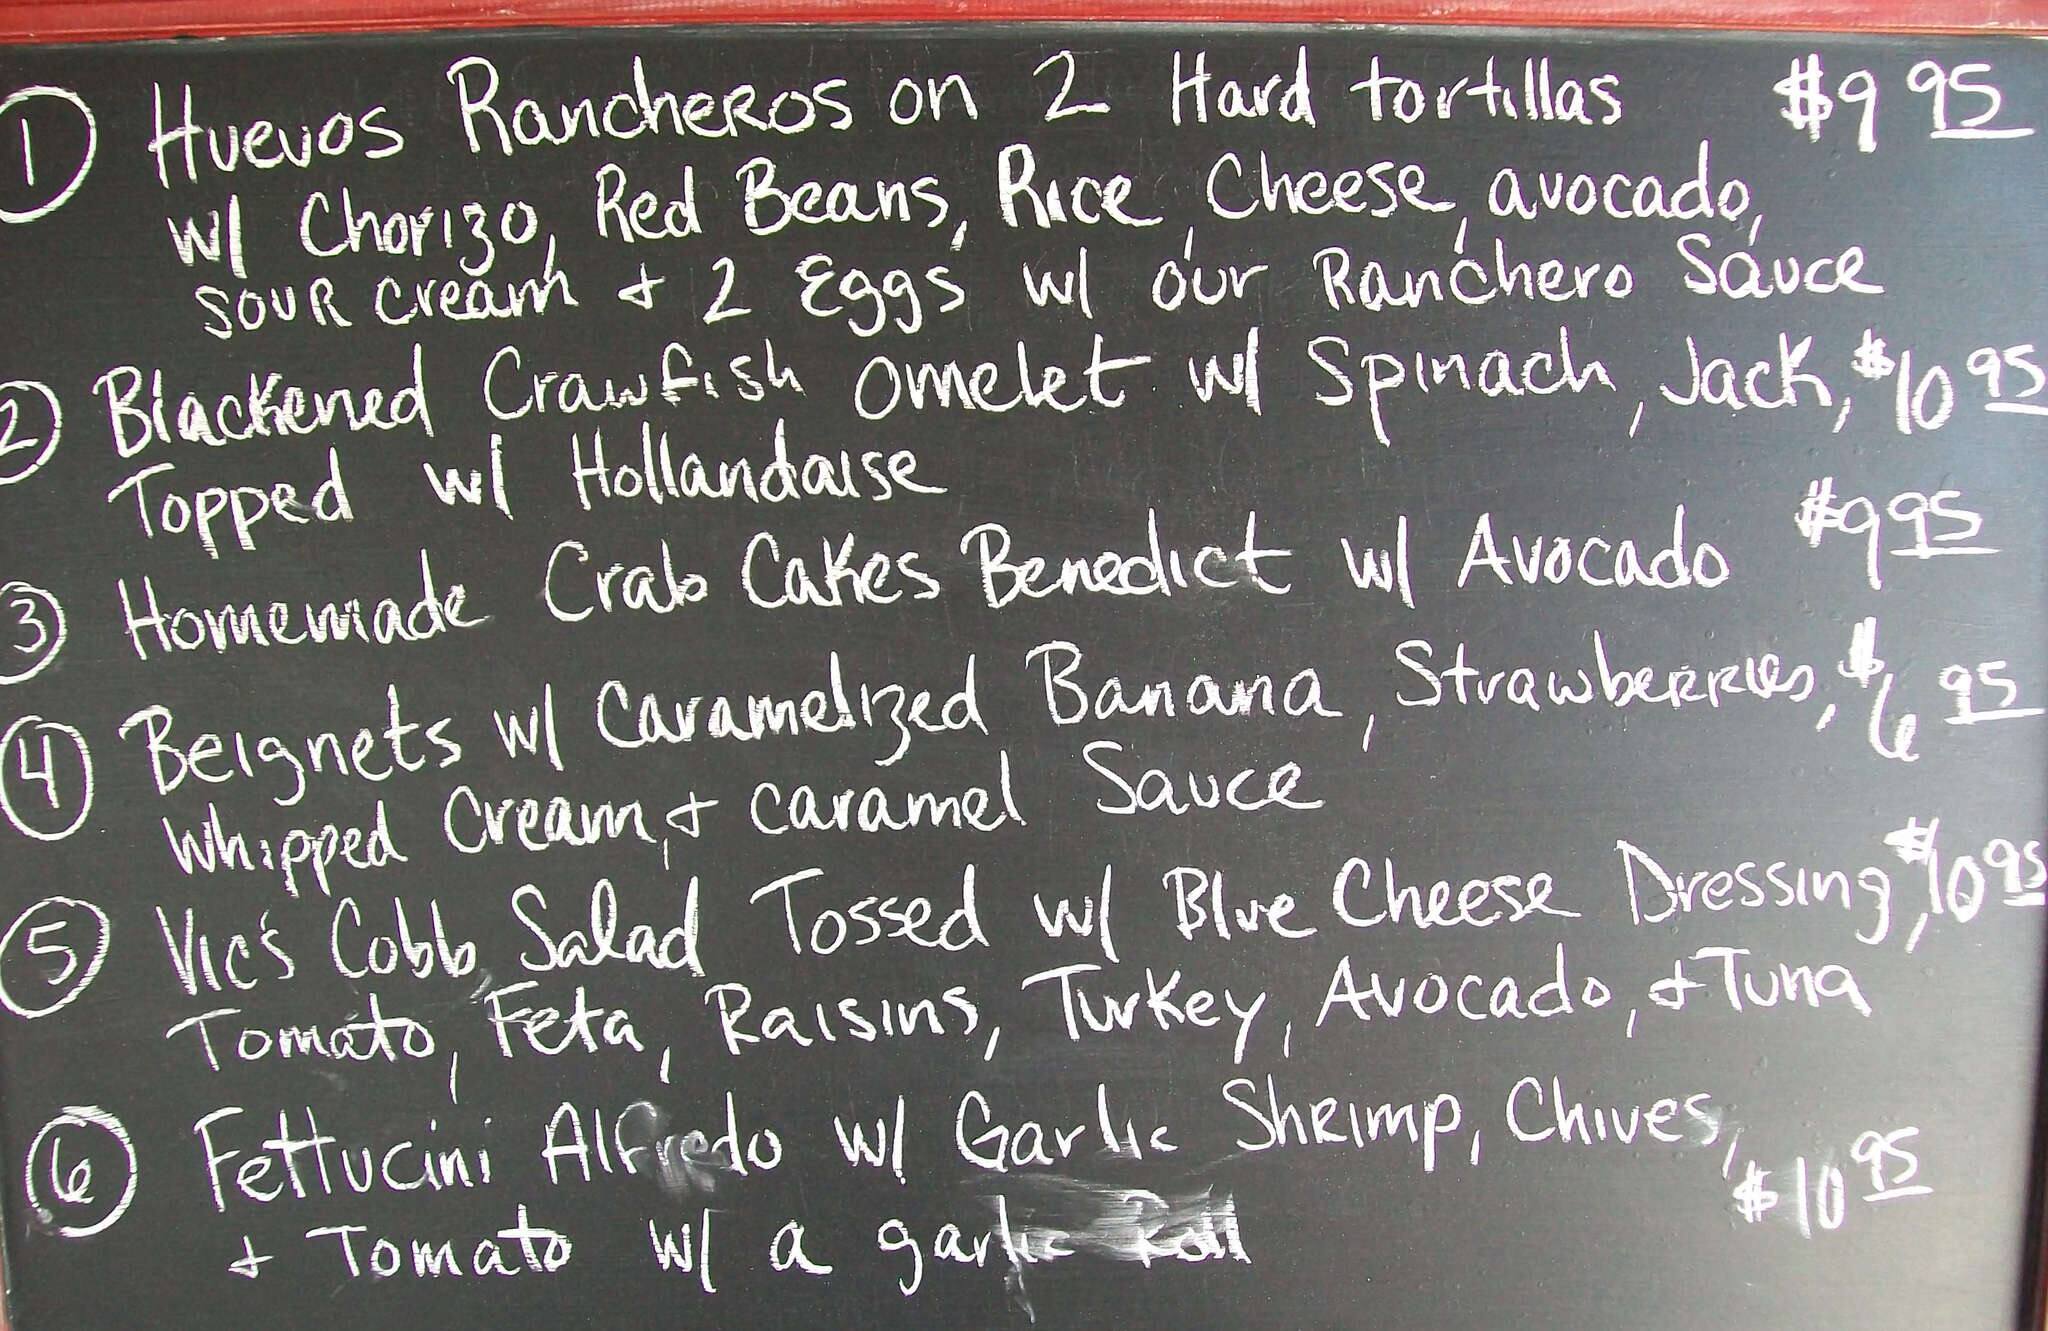 1 Huevos Rancheros on 2 Hard tortillas $9 95
w/ Chorizo, Red Beans, Rice, Cheese, avocado,
sour cream + 2 Eggs w/ our Ranchero Sauce
2 Blackened Crawfish Omelet w/ Spinach, Jack, $10 95
Topped w/ Hollandaise
3 Homemade Crab Cakes Benedict w/ Avocado $9 95
4 Beignets w/ Caramelized Banana, Strawberries, $6 95
Whipped Cream, + caramel Sauce
5 Vic's Cobb Salad Tossed w/ Blue Cheese Dressing, $10 95
Tomato, Feta, Raisins, Turkey, Avocado, + Tuna
6 Fettucini Alfredo w/ Garlic Shrimp, Chives, $10 95
+ Tomato w/ a garlic Roll